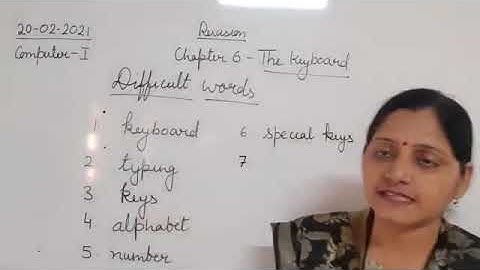 20-02-2021
Revision
Computer-I
Chapter 6 - The Keyboard
Difficult words
1 keyboard
2 typing
3 keys
4 alphabet
5. number
6 special keys
7